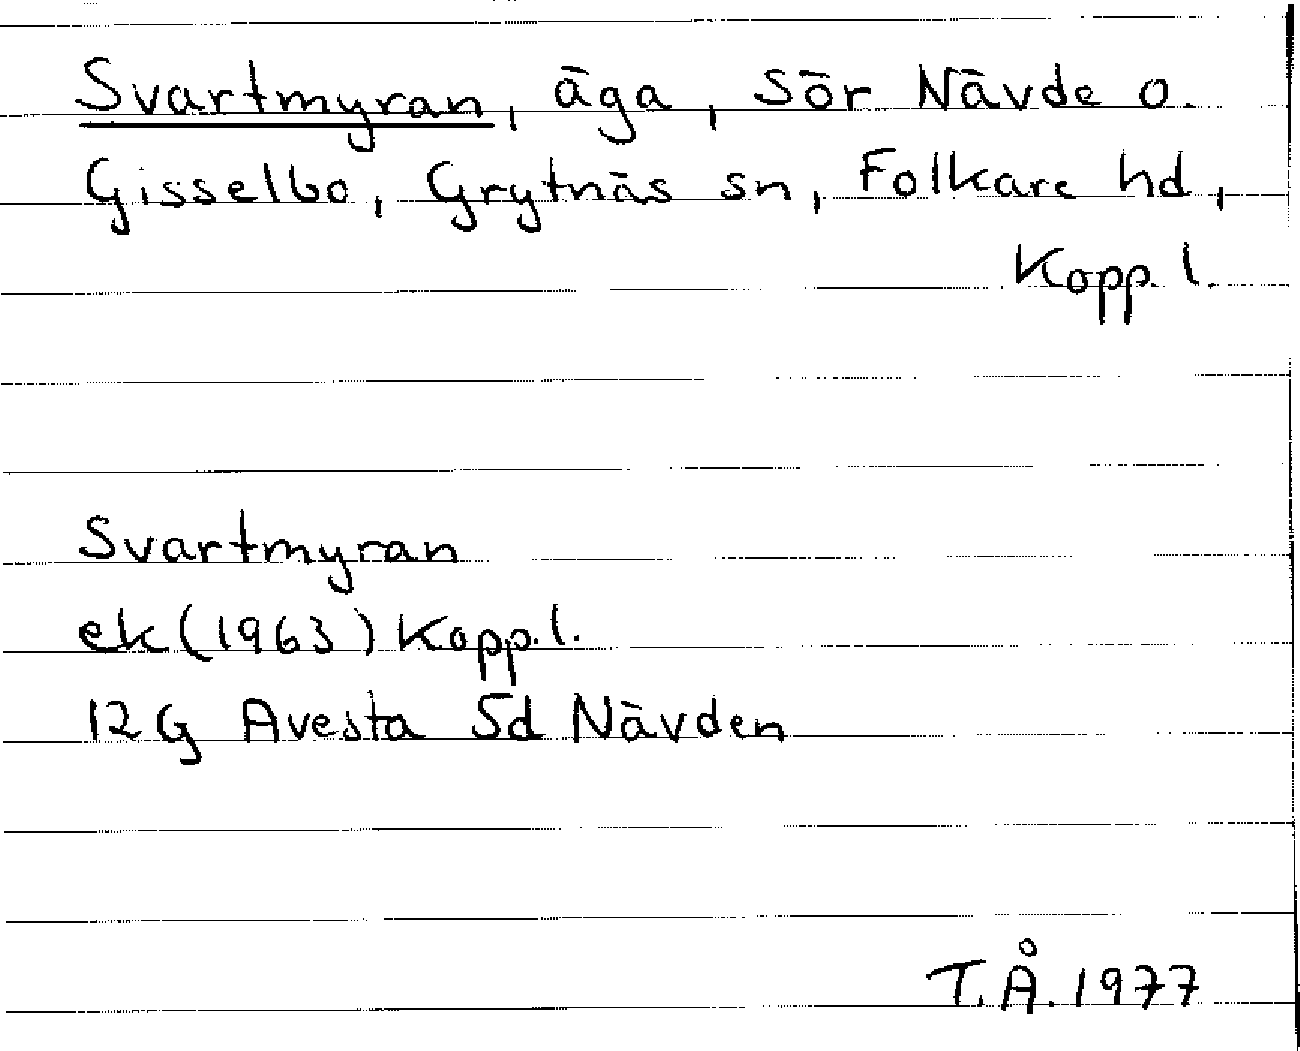 Svartmyran, äga, Sör Nävde o.
Gisselbo, Grytnäs sn, Folkare hd,
Kopp. l.
Svartmyran
ek (1963) Kopp. l.
12G Avesta 5d Nävden
T.Å. 1977